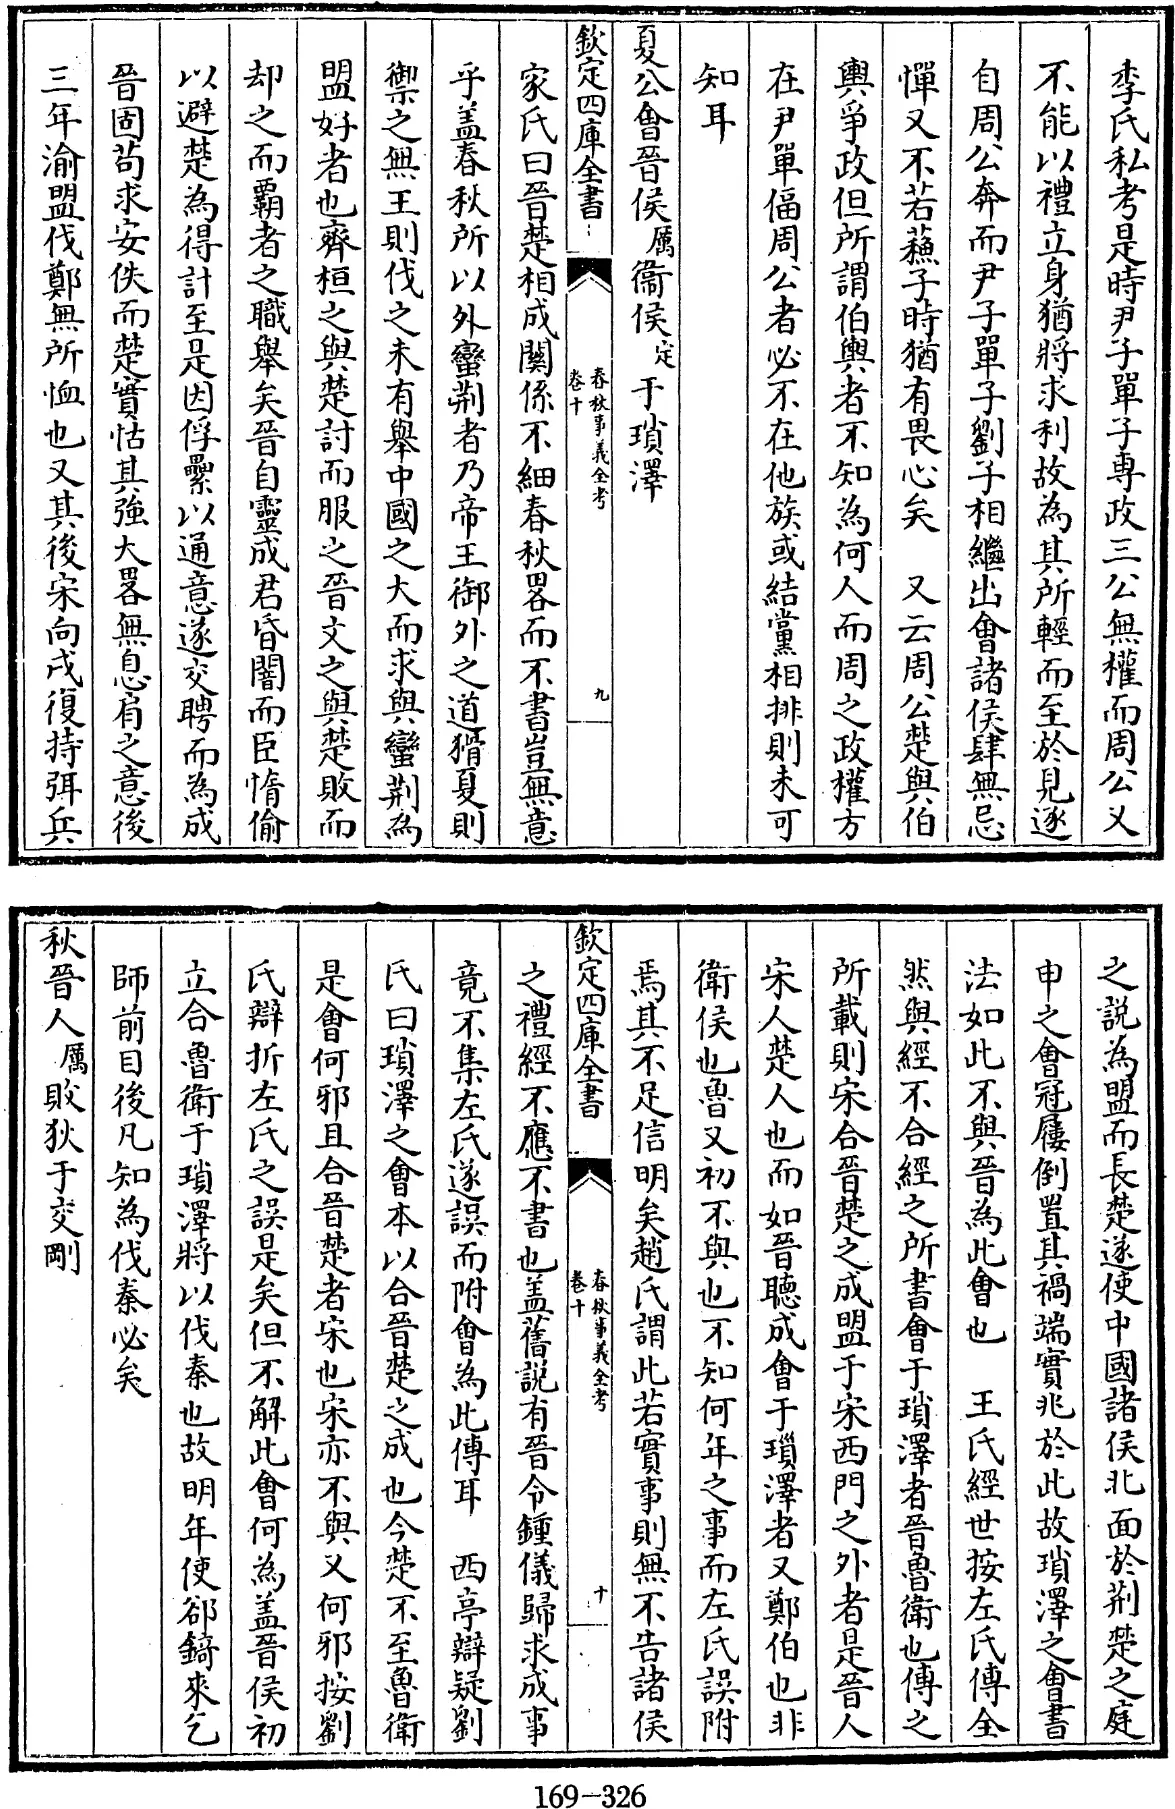 李氏私考是時尹子單子専政三公無權而周公又
不能以禮立身猶將求利故為其所輕而至於見逐
自周公奔而尹子單子劉子相繼出會諸侯肆無忌
憚又不若蘓子時猶有畏心矣　又云周公楚與伯
輿爭政但所謂伯輿者不知為何人而周之政權方
在尹單偪周公者必不在他族或結黨相排則未可
知耳
夏公會晉侯厲衞侯定于瑣澤
欽定四庫全書
春秋事義全考
卷十
九
家氏曰晉楚相成關係不細春秋畧而不書豈無意
乎盖春秋所以外蠻荆者乃帝王御外之道猾夏則
禦之無王則伐之未有舉中國之大而求與蠻荆為
盟好者也齊桓之與楚討而服之晉文之與楚敗而
却之而覇者之職舉矣晉自靈成君昏闇而臣惰偷
以避楚為得計至是因俘纍以通意遂交聘而為成
晉固苟求安佚而楚實怙其強大畧無息肩之意後
三年渝盟伐鄭無所恤也又其後宋向戌復持弭兵
之説為盟而長楚遂使中國諸侯北面於荆楚之庭
申之會冠屨倒置其禍端實兆於此故瑣澤之會書
法如此不與晉為此會也　王氏經世按左氏傳全
然與經不合經之所書會于瑣澤者晉魯衛也傳之
所載則宋合晉楚之成盟于宋西門之外者是晉人
宋人楚人也而如晉聽成會于瑣澤者又鄭伯也非
衛侯也魯又初不與也不知何年之事而左氏誤附
焉其不足信明矣趙氏謂此若實事則無不告諸侯
欽定四庫全書
春秋事義全考
卷十
十
之禮經不應不書也盖舊説有晉令鍾儀歸求成事
竟不集左氏遂誤而附會為此傳耳　西亭辯疑劉
氏曰瑣澤之會本以合晉楚之成也今楚不至魯衛
是會何邪且合晉楚者宋也宋亦不與又何邪按劉
氏辯折左氏之誤是矣但不解此會何為盖晉侯初
立合魯衛于瑣澤將以伐秦也故明年使郤錡來乞
師前目後凡知為伐秦必矣
秋晉人厲敗狄于交剛
169-326